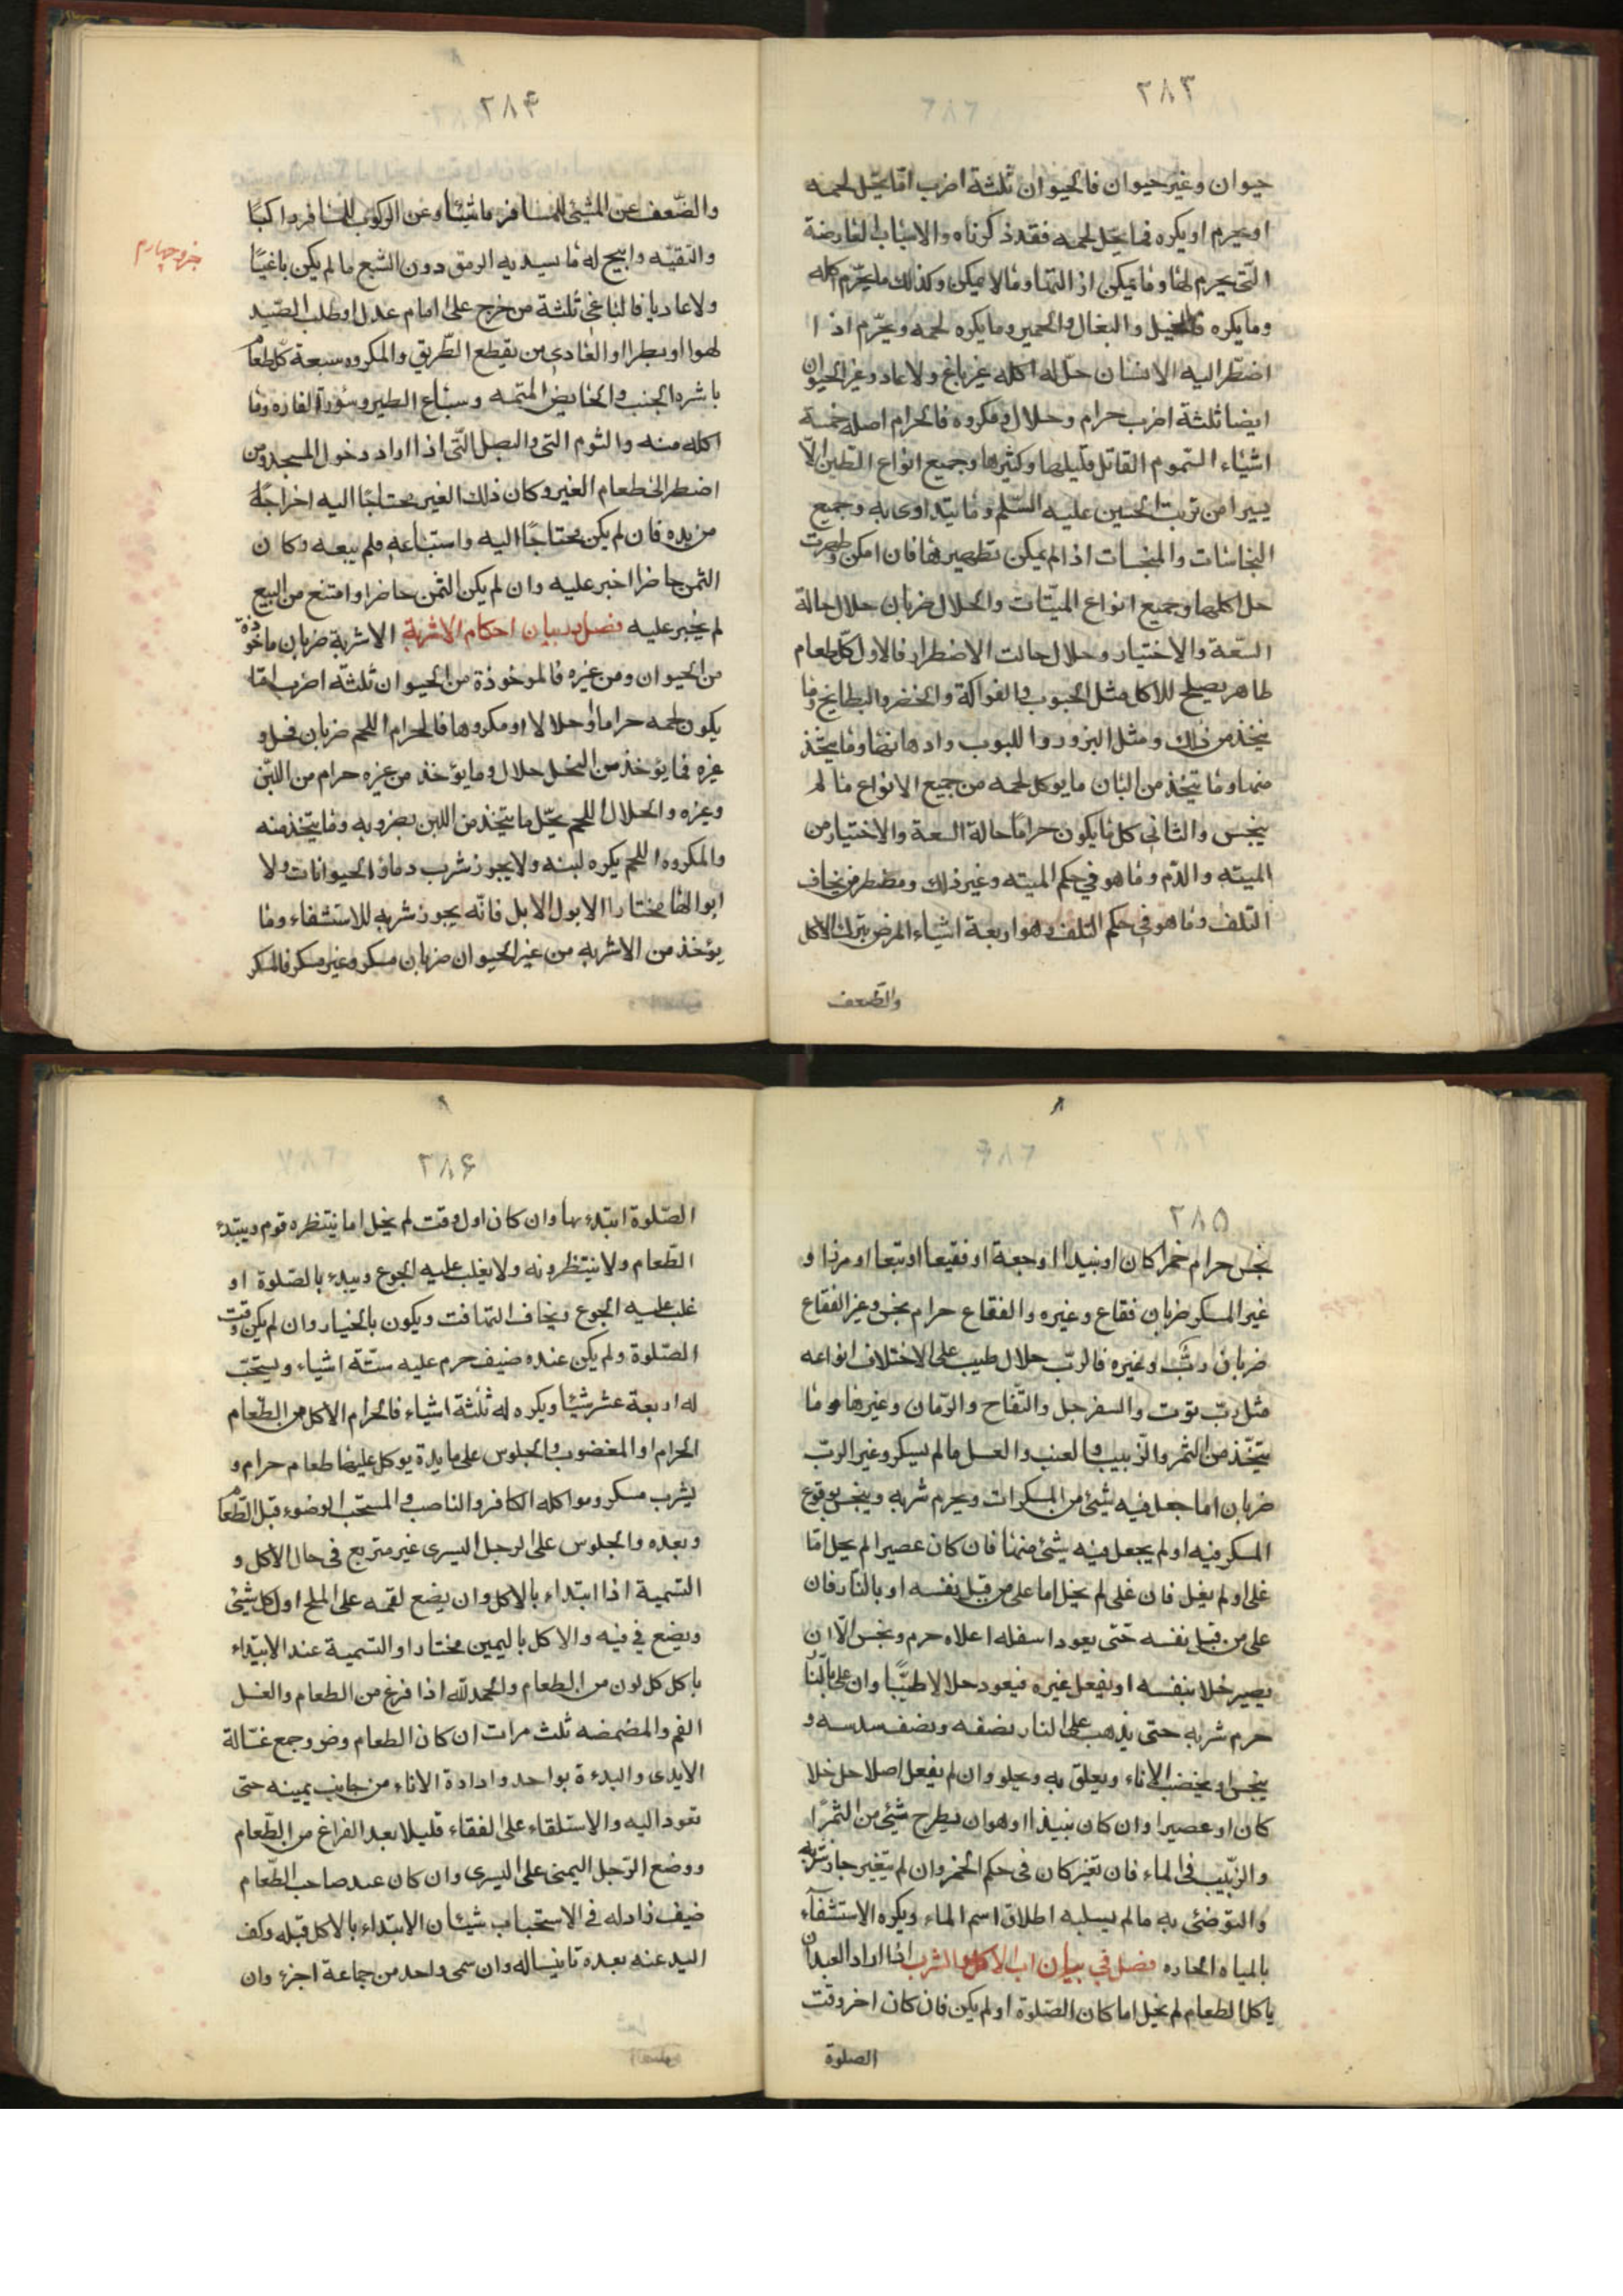 ٢٨٣
حيوان وغير حيوان فالحيوان ثلثة اضرب امّا يحّل لحمه
او يحرم او يكره فما يحّل لحمه فقد ذكرناه والاسباب العارضة
الّتى يحرم لها وما يمكن ازالتها وما لا يمكن وكذلك ما يحرّم اكله
وما يكره فالخيل والبغال والحمير وما يكره لحمه ويحرّم اذا
اضطرّ اليه الانسان حلّ له اكله غير باغ ولا عاد وغير الحيوان
ايضا ثلثة اضرب حرام وحلال ومكروه فالحرام اصله خمسة
اشياء السّموم القاتل قليلها وكثيرها وجميع انواع الطين الّا
يسيرا من تربت الحسين عليه السّلم وما يتداوى به وجميع
النجاسات والمنجسات اذا لم يمكن تطهيرها فان امكن وطهرت
حل اكلها وجميع انواع الميّتات والحلال ضربان حلال حالة
السّعة والاختيار وحلال حالت الاضطرار فالاول كلّ طعام
طاهر يصلح للاكل مثل الحبوب والفواكة والخضر والبطايخ وما
يتخذ من ذلك ومثل البزور واللبوب وادهانها وما يتخّذ
منها وما يتيخذ من البان ما يوكل لحمه من جميع الانواع ما لم
ينجس والثانى كل ما يكون حرامًا حالة السعة والاختيار من
الميته والدّم وما هو في حكم الميته وغير ذلك ومضطر من يخاف
التلف وما هو فى حكم التلف وهو اربعة اشياء المرض بترك الاكل
والضّعف
٢٨۴
والضّعف عن المشى للمسافر ماشيًا وعن الركوب للمسافر راكبًا
والتقيّه وابيح له ما يسد به الرمق دون الشبع ما لم يكن باغيًا
جزو چهارم
ولا عاديا فالباغى ثلثة من خرج على امام عدل او طلب الصّيد
لهوا او بطرا والعادى من يقطع الطّريق والمكروه سبعة كل طعام
باشره الجنب والحايض المتهمه وسباع الطير وسؤرة الفاره وما
اكله منه والثوم التى والبصل الّتى اذا اراد دخول المسجد ومن
اضطر الى طعام الغير وكان ذلك الغير محتاجًا اليه اخراجه
من يده فان لم يكن محتاجًا اليه واستباعه فلم يبعه وكان
الثمن حاضرا اخبر عليه وان لم يكن الثمن حاضرا وامتنع من البيع
لم يجبر عليه فصل در بيان احكام الاشربة الاشربة ضربان ماخوذة
من الحيوان ومن غيره فالموخوذة من الحيوان ثلثّه اضرب امّا
يكون لحمه حراما او حلالا او مكروها فالحرام اللحم ضربان نحل و
غيره فما يؤخذ من النحل حلال وما يؤخذ من غيره حرام من اللبن
وغيره والحلال اللحم يحّل ما يتخذ من اللبن بضروبه وما يتخذ منه
والمكروه اللحم يكره لبنه ولا يجوز شرب دماؤ الحيوانات ولا
ابوالها مختارا الا بول الابل فانّه يجوز شربه للاستشفاء وما
يؤخذ من الاشربه من غير الحيوان ضربان مسكر وغير مسكر فالمسكر
٢٨۵
نجس حرام خمرا كان او نبيذا او جعة او فقيعا او تبعا او مرزا و
غير المسكر ضربان فقاع وغيره والفقاع حرام نجس وغير الفقاع
ضربان ربّ وغيره فالربّ حلال طيب على الاختلاف انواعه
مثل ربّ توت والسفرجل والتّفاح والرّمان وغيرها وما
يتّخذ من التمر والزّبيب والعنب والعسل ما لم يسكر وغير الربّ
ضربان اما جعل فيه شىئ من المسكرات ويحرم شربه وينجس بوقوع
المسكر فيه او لم يجعل فيه شىئ منها فان كان عصيرا لم يخل امّا
غلى او لم يغل فان غلى لم يخل اما على من قبل نفسه او بالنار فان
على من قبل نفسه حتى يعود اسفله اعلاه حرم ونجس الّا ان
يصير خلا بنفسه او بفعل غيره فيعود حلالا طيبًا وان على بالنّار
حرم شربه حتى يذهب على النار نصفه ونصف سدسه و
ينجس او يخضب الاناء ويعلق به ويحلو وان لم يفعل اصلا حل خلا
كان او عصيرا وان كان نبيذا او هو ان يطرح شىئ من الثمرًا
والزّبيب فى الماء فان تغيّر كان فى حكم الخمر وان لم يتغير جاز شربه
والتوضئ به ما لم يسلبه اطلاق اسم الماء ويكره الاستشفآء
بالمياه الحاره فصل في بيان اب الاكل والشرب اذا اراد العبد ان
ياكل الطعام لم يخل اما كان الصّلوة او لم يكن فان كان اخر وقت
الصلوة
٢٨۶
الصّلوة ابتدء بها وان كان اول وقت لم يخل اما ينتظره قوم ويبتدء
الطّعام ولا ينتظرونه ولا يغلب عليه الجوع ويبدء بالصّلوة او
غلب عليه الجوع ويخاف التهافت ويكون بالخيار وان لم يكن وقت
الصّلوة ولم يكن عنده ضيف حرم عليه ستّة اشياء ويستحّب
له اربعة عشر شيئا ويكره له ثلثة اشياء فالحرام الاكل من الطّعام
الحرام او المغضوب والجلوس على مايدة يوكل عليها طعام حرام و
يشرب مسكر ومواكله الكافر والناصب والمستحّب الوضوء قبل الطّعام
وبعده والجلوس على الرجل اليسرى غير متربع فى حال الاكل و
التسمية اذا ابتداء بالاكل وان يضع لقمه على الملح اول كل شىئ
ويضع في فيه والاكل باليمين مختارا والتسمية عند الابتداء
باكل كل لون من الطعام والحمد لله اذا فرغ من الطعام والغسل
الفم والمضمضه ثلث مرات ان كان الطعام وضر وجمع غسّالة
الايدى والبدءة بواحد وادارة الاناء من جانب يمينه حتى
تعود اليه والاستلقاء على القفاء قليلا بعد الفراغ من الطّعام
ووضع الرّجل اليمنى على اليسرى وان كان عند صاحب الطّعام
ضيف زاد له فى الاستحباب شيئان الابتداء بالاكل قبله وكف
اليد عنه بعده تانيسا له وان سمى واحد من جماعة اجزء وان